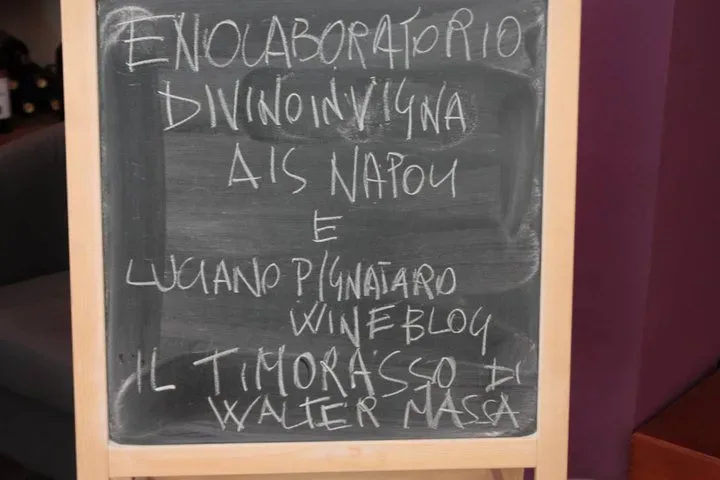 ENOLABORATORIO
DIVINOINVIGNA
AIS NAPOLI
E
LUCIANO PIGNATARO
WINEBLOG
IL TIMORASSO DI
WALTER MASSA